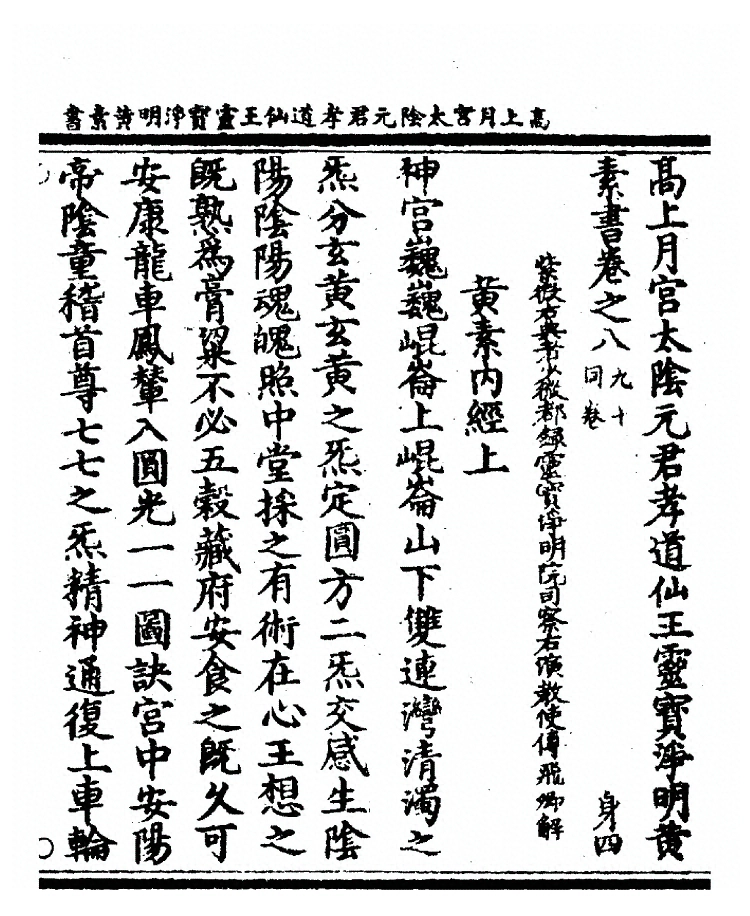 高上月宮太陰元君孝道仙王靈寶淨明黃素書
高上月宮太陰元君孝道仙王靈寶淨明黃
素書卷之八 九十同卷 身四
紫微右典者少微都錄靈寶淨明院司察右演教使傅飛卿解
黃素內經上
神宮巍巍崐崙上崐崙山下雙連灣清濁之
炁分玄黃玄黃之炁定圓方二炁交感生陰
陽陰陽魂魄照中堂採之有術在心王想之
既熟為膏粱不必五穀藏府安食之既久可
安康龍車鳳輦入圓光一一圖訣宮中安陽
帝陰童稽首尊七七之炁精神通復上車輪